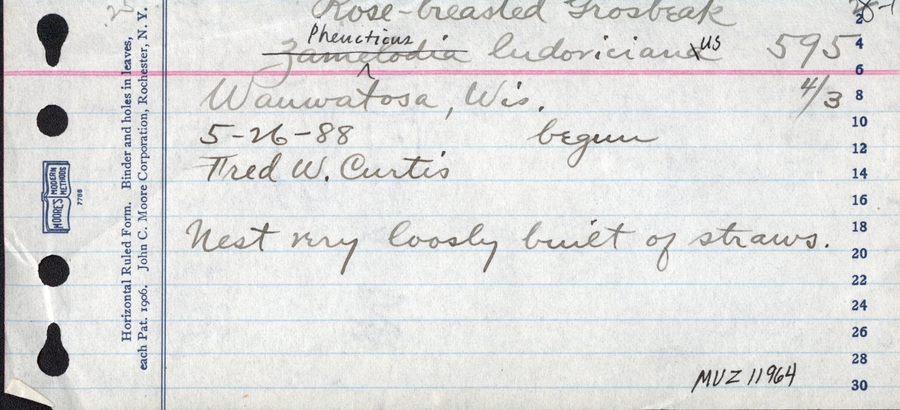 Rose-breasted Grosbeak
Pheucticus
Zamelodia ludovicianaus 595
Wauwatosa, Wis. 4/3
5-26-88 begun
Fred W. Curtis
Nest very loosly built of straws.
MUZ 11964
2
4
6
8
10
12
14
16
18
20
22
24
26
28
30
Horizontal Ruled Form. Binder and holes in leaves,
each Pat. 1906. John C. Moore Corporation, Rochester, N. Y.
MOORE'S MODERN METHODS
7786